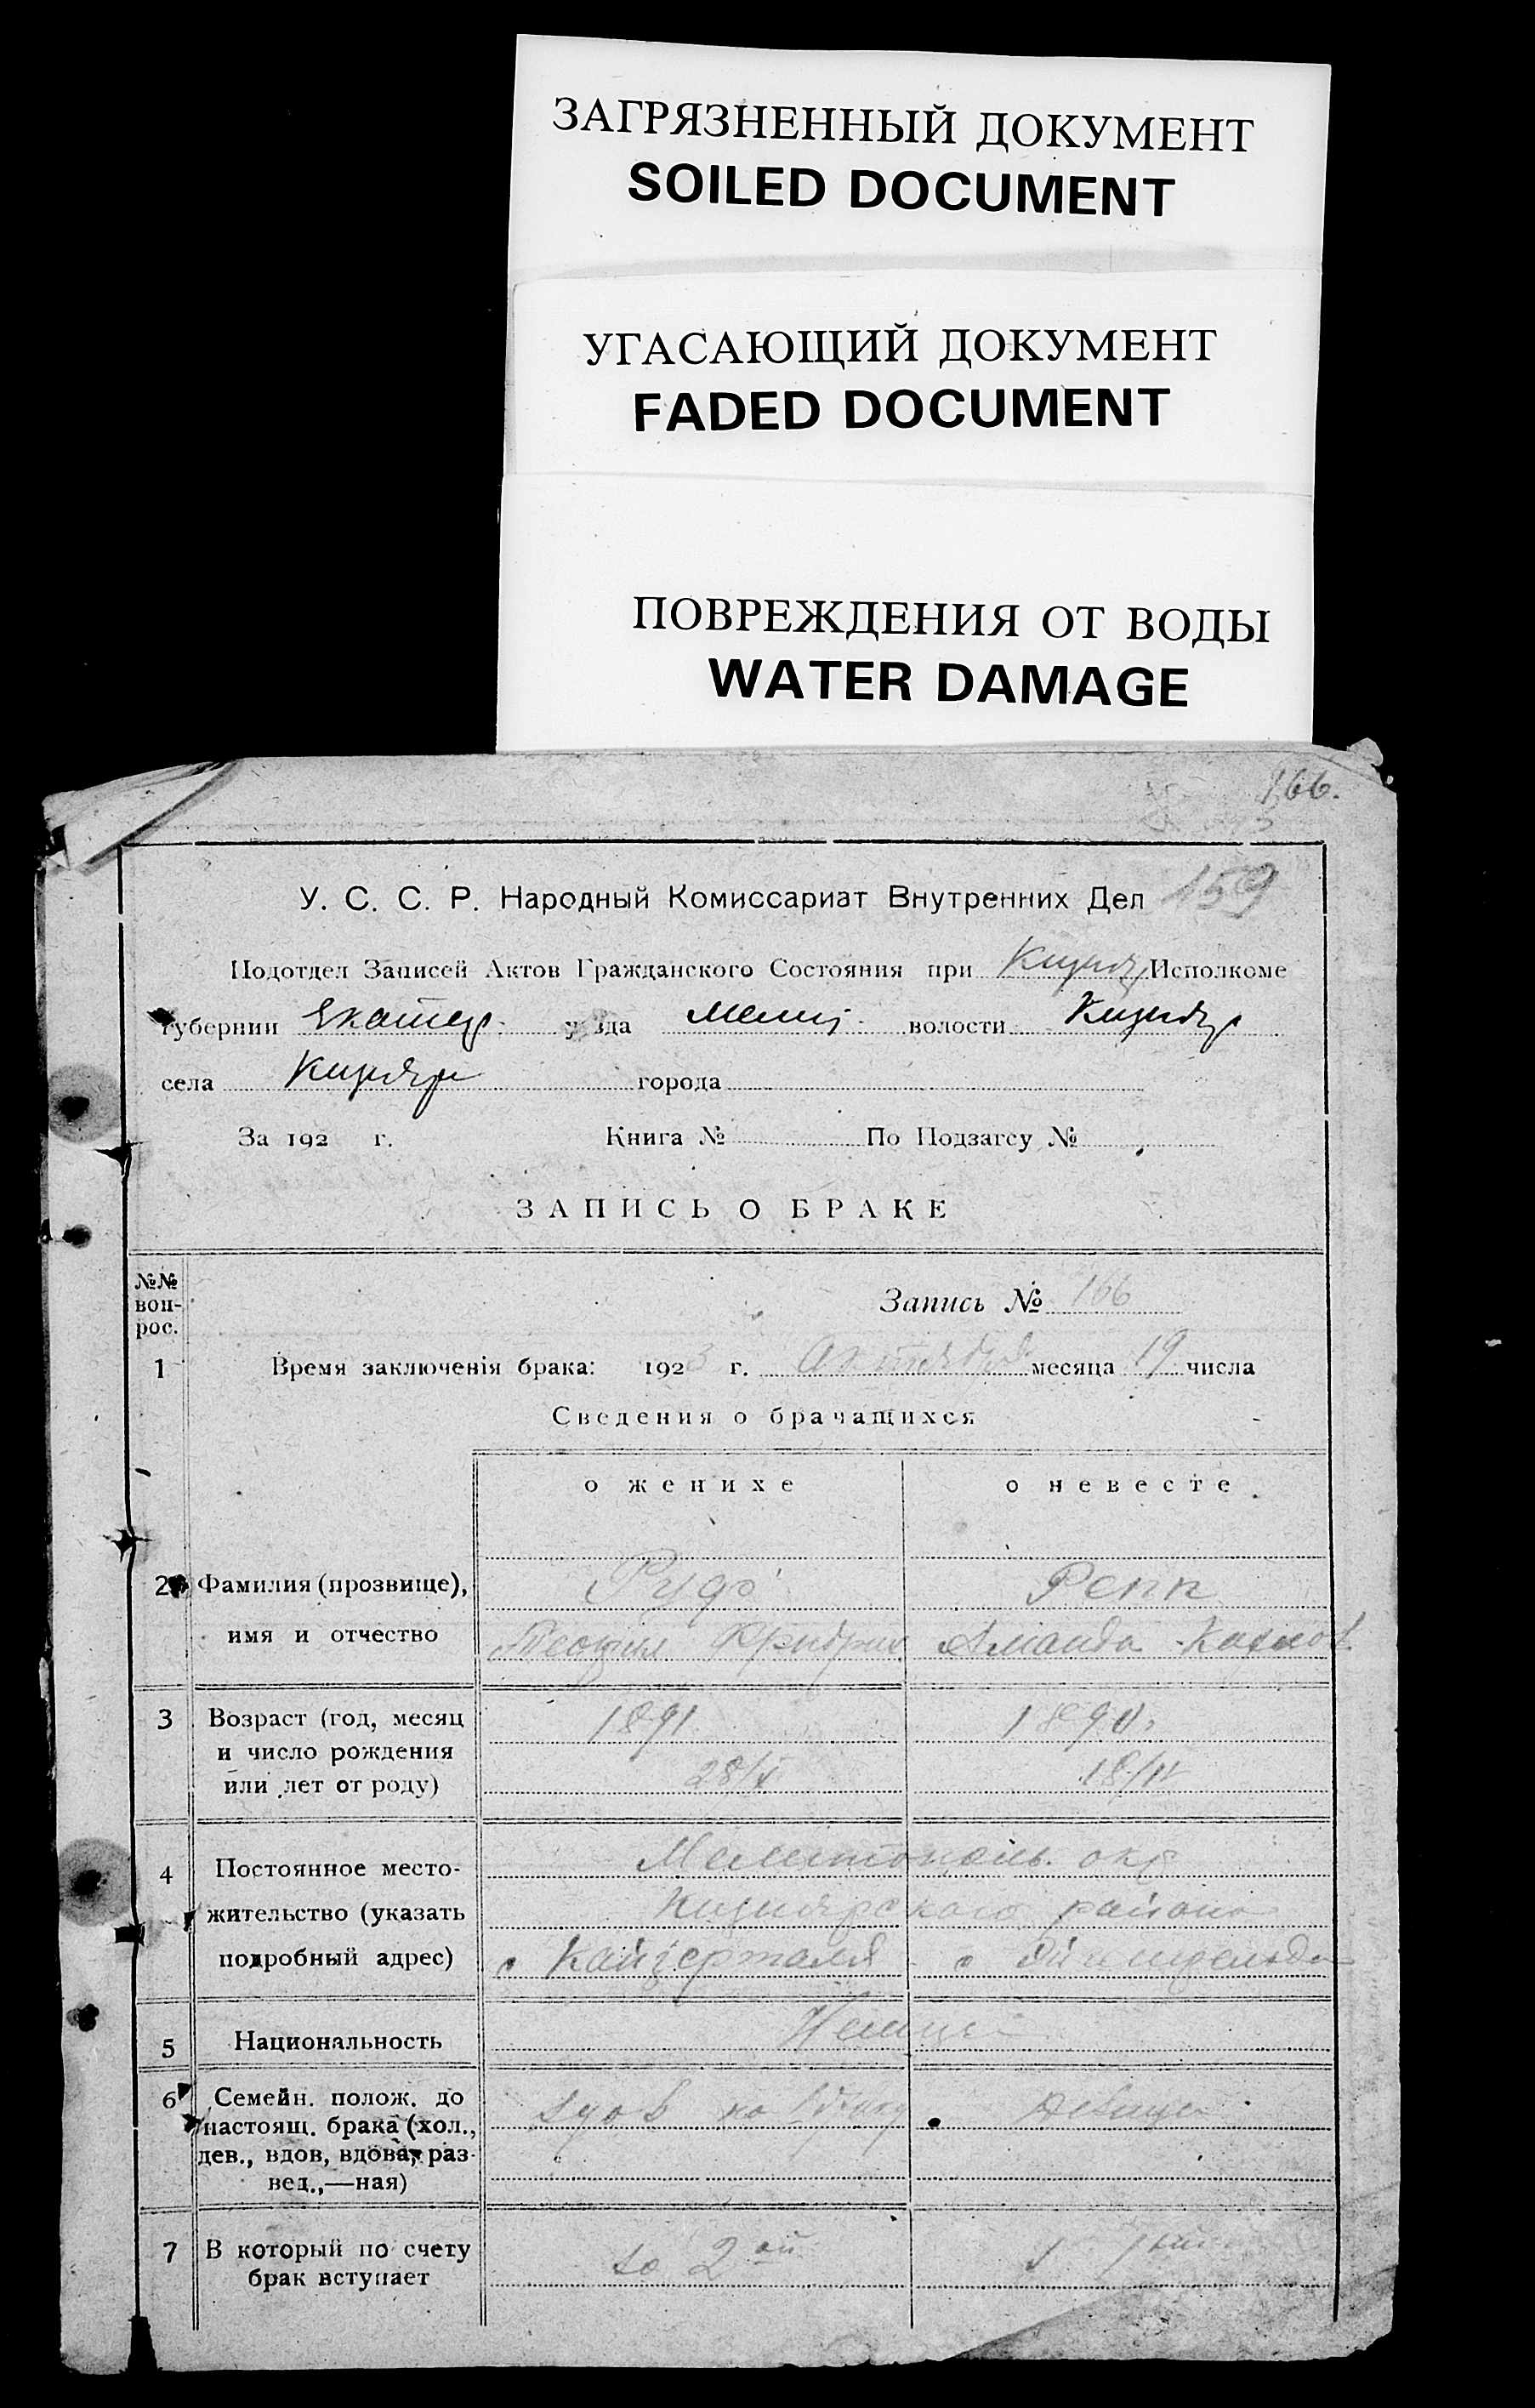 ЗАГРЯЗНЕННЫЙ ДОКУМЕНТ
SOILED DOCUMENT
УГАСАЮЩИЙ ДОКУМЕНТ
FADED DOCUMENT
ПОВРЕЖДЕНИЯ ОТ ВОДЫ
WATER DAMAGE
166.
159
У. С. С. Р. Народный Комиссариат Внутренних Дел
Подотдел Записей Актов Гражданского Состояния при Исполкоме
губернии Екатер. уезда Мелит. волости
села города
За 192 г. Книга № По Подзагсу №
ЗАПИСЬ О БРАКЕ
№№ воп-рос.
Запись № 166
1 Время заключенія брака: 1923 г. Октября месяца 19 числа
Сведения о брачащихся
о женихе о невесте
2 Фамилия (прозвище), Рудо Репп
имя и отчество Фридрих Аманда
3 Возраст (год, месяц 1891 1890.
и число рождения
или лет от роду) 28/X
4 Постоянное место- Мелитополь. окр
жительство (указать Кизиярского района
подробный адрес) с Кайзерталя с
5 Национальность Немцы
6 Семейн. полож. до
настоящ. брака (хол., вдов девица
дев., вдов, вдова, раз-
вед.,—ная)
7 В который по счету во 2ой в 1ый
брак вступает